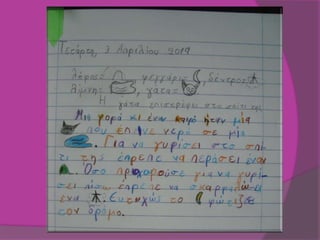 Τετάρτη 3 Απριλίου 2019
λόφος= , φεγγάρι= , δέντρο=
λίμνη= , γάτα=
Η γάτα επιστρέφει στο σπίτι της
Μια φορά κι έναν καιρό ήταν μία
που έπινε νερό σε μία
. Για να γυρίσει στο σπί-
τι της έπρεπε να περάσει έναν
. Όσο προχωρούσε για να γυρί-
σει πίσω έπρεπε να σκαρφαλώσει
ένα . Ευτυχώς το φώτιζε
τον δρόμο.